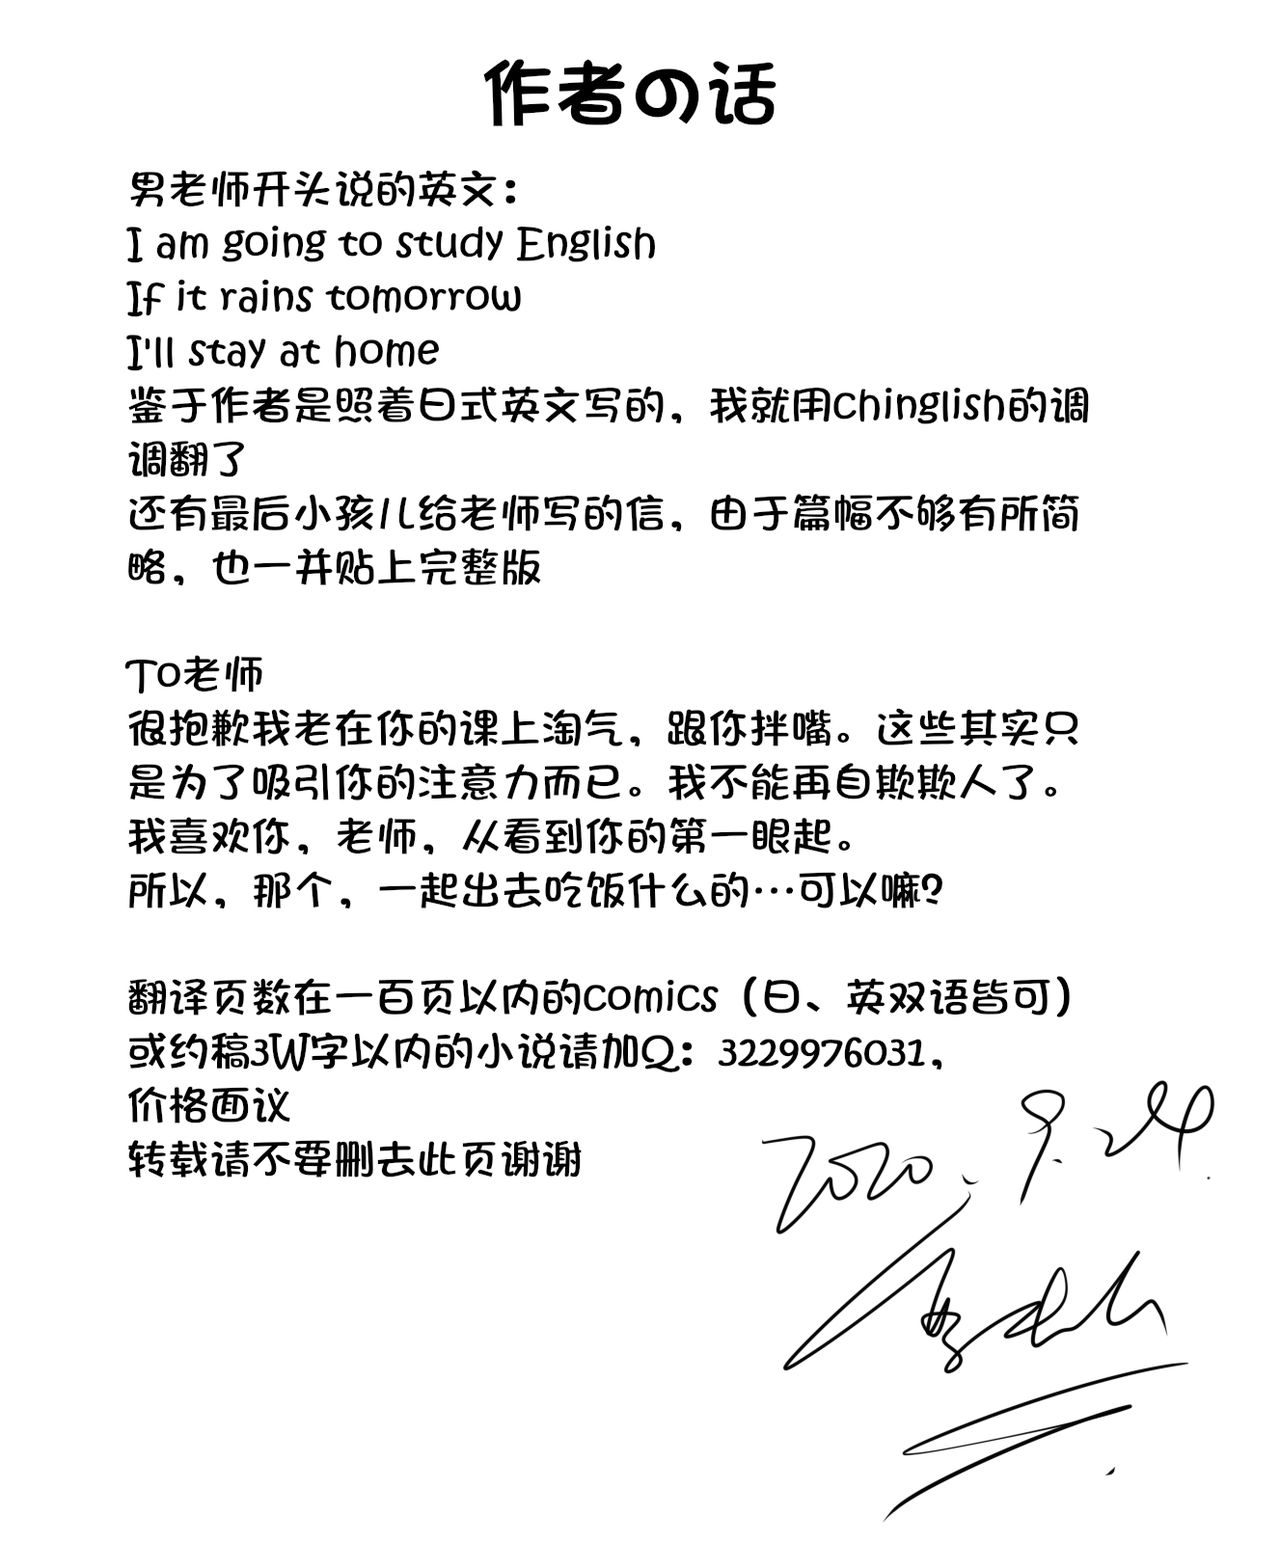 作者の话
男老师开头说的英文：
I am going to study English
If it rains tomorrow
I'll stay at home
鉴于作者是照着日式英文写的，我就用chinglish的调
调翻了
还有最后小孩儿给老师写的信，由于篇幅不够有所简
略，也一并贴上完整版
To老师
很抱歉我老在你的课上淘气，跟你拌嘴。这些其实只
是为了吸引你的注意力而已。我不能再自欺欺人了。
我喜欢你，老师，从看到你的第一眼起。
所以，那个，一起出去吃饭什么的…可以嘛？
翻译页数在一百页以内的comics（日、英双语皆可）
或约稿3W字以内的小说请加Q：3229976031，
价格面议
转载请不要删去此页谢谢
2020.9.24.